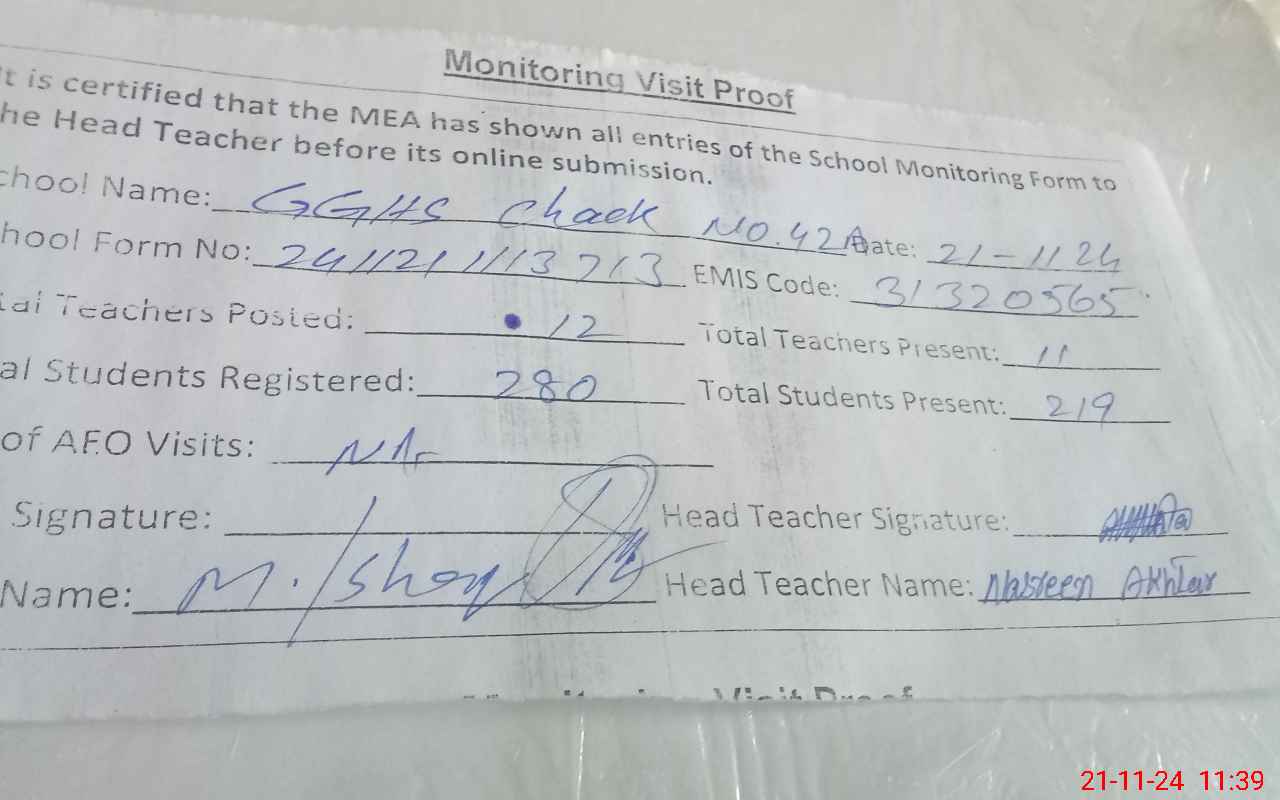 Monitoring Visit Proof
It is certified that the MEA has shown all entries of the School Monitoring Form to
he Head Teacher before its online submission.
chool Name: GGHS Chack No. 42A Date: 21-11 24
hool Form No: 2411211113713 EMIS Code: 31320565
tal Teachers Posted: 12 Total Teachers Present: 11
al Students Registered: 280 Total Students Present: 219
of AEO Visits: NA
Signature: Head Teacher Signature:
Name: M. Head Teacher Name: Nasreen Akhtar
Visit Proof
21-11-24 11:39